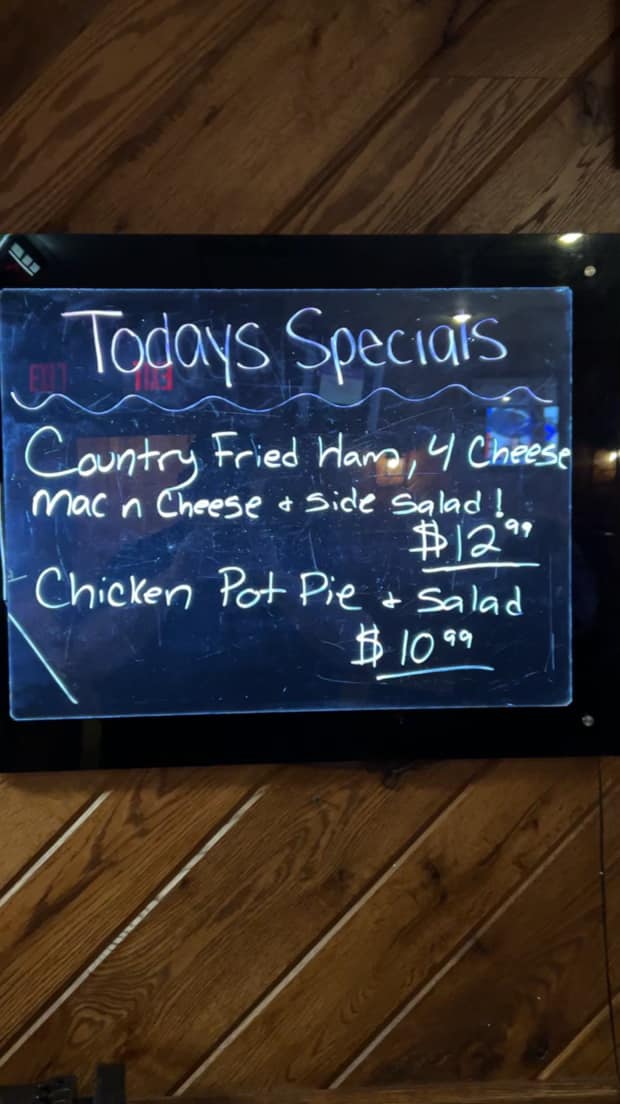 Todays Specials
EXIT EXIT
Country Fried Ham, 4 Cheese
Mac n Cheese & Side Salad!
$12.99
Chicken Pot Pie & Salad
$10.99